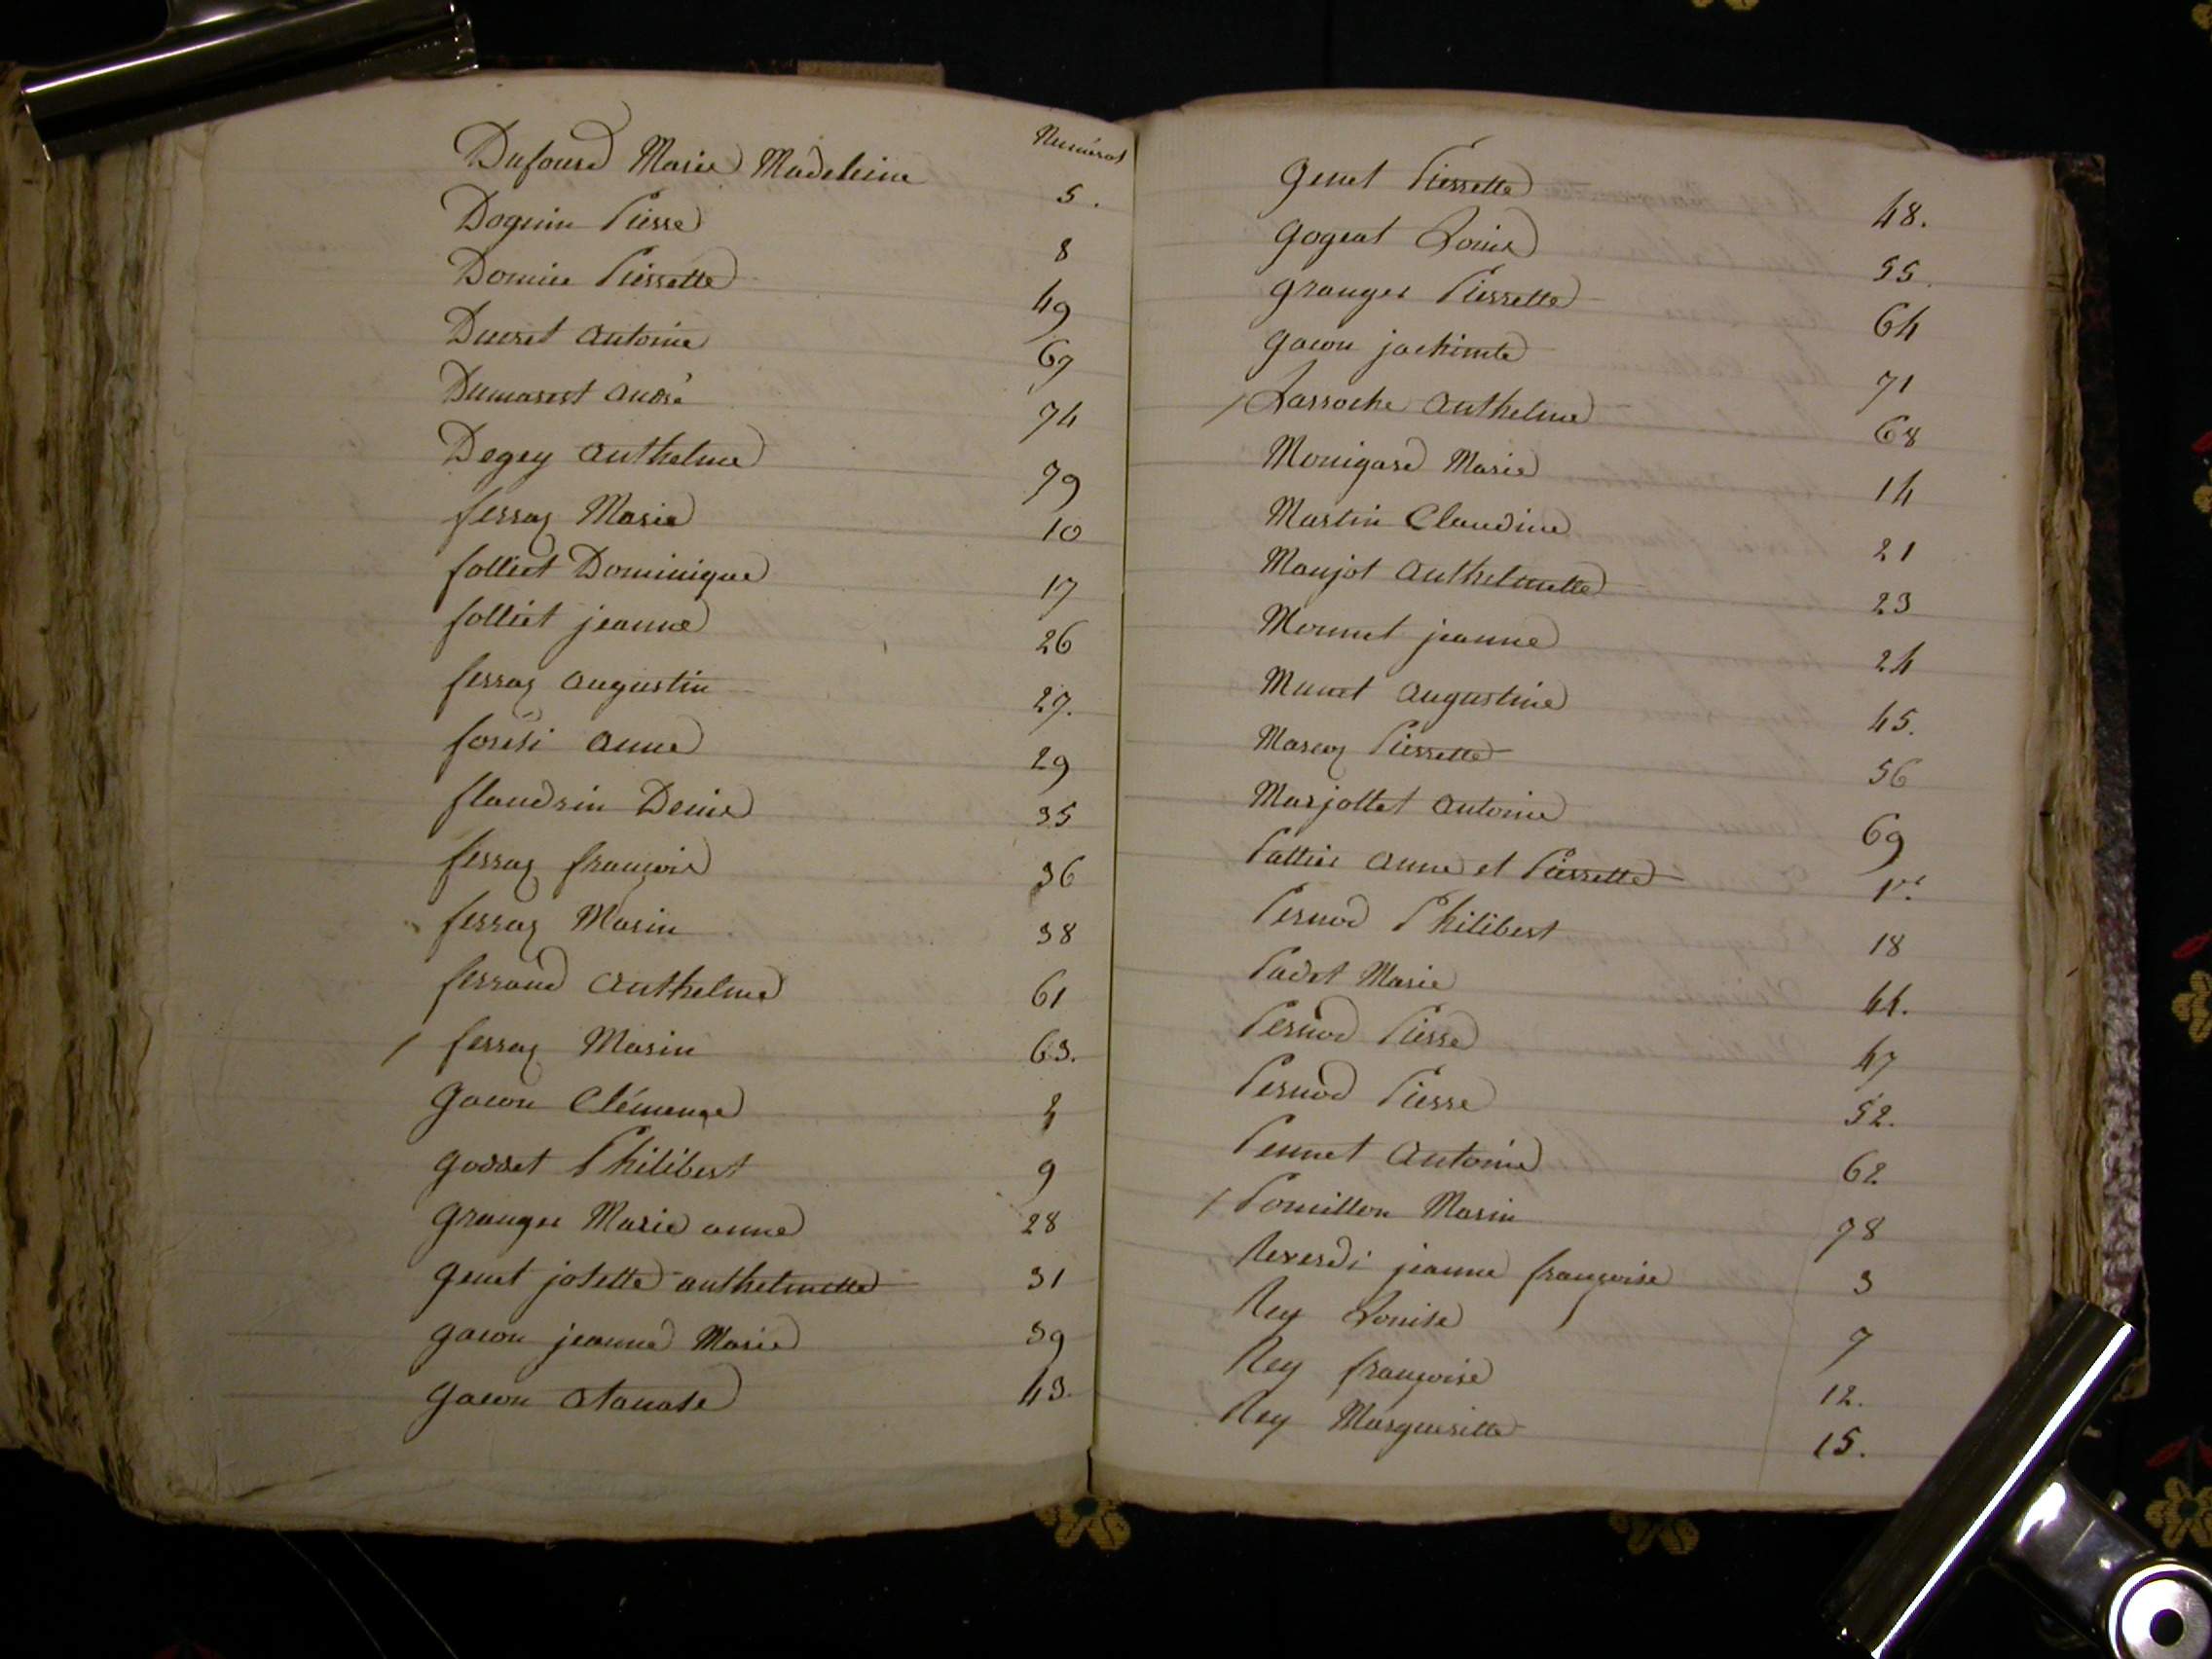 Numéros
Dufourd Marie Madeleine 5.
Doguin Pierre 8
Domice Pierrette 49
Ducret antoine 67
Dumarest André 74
Degey anthelme 79
ferraz Marie 10
folliet Dominique 17
folliet jeanne 26
ferraz augustin 27.
forési anne 29
flandrin Denis 35
ferraz françois 36
ferraz Marin 38
ferrand anthelme 61
/ ferraz Marin 63.
gacon Clémence 2
godet Philibert 9
granger Marie anne 28
genet josette anthelmette 31
gacon jeanne Marie 39
gacon atanase 43.
genet Pierrette 48.
gogeat Louis 55.
granger Pierrette 64
gacon jachimte 71
/ Larroche anthelme 68
Monigard Marie 14
Martin Claudine 21
Monjot anthelmette 23
Monnet jeanne 24
Munet augustine 45.
Marcoz Pierrette 56
Marjollet antoine 69
Pattier anne et Pierrette 1er
Pernod Philibert 18
Padet Marie 44.
Pernod Pierre 47
Pernod Pierre 52.
Pennet antoine 62
/ Pomillon Marin 78
Reverdi jeanne françoise 3
Rey Louise 7
Rey françoise 12.
Rey Margueritte 15.